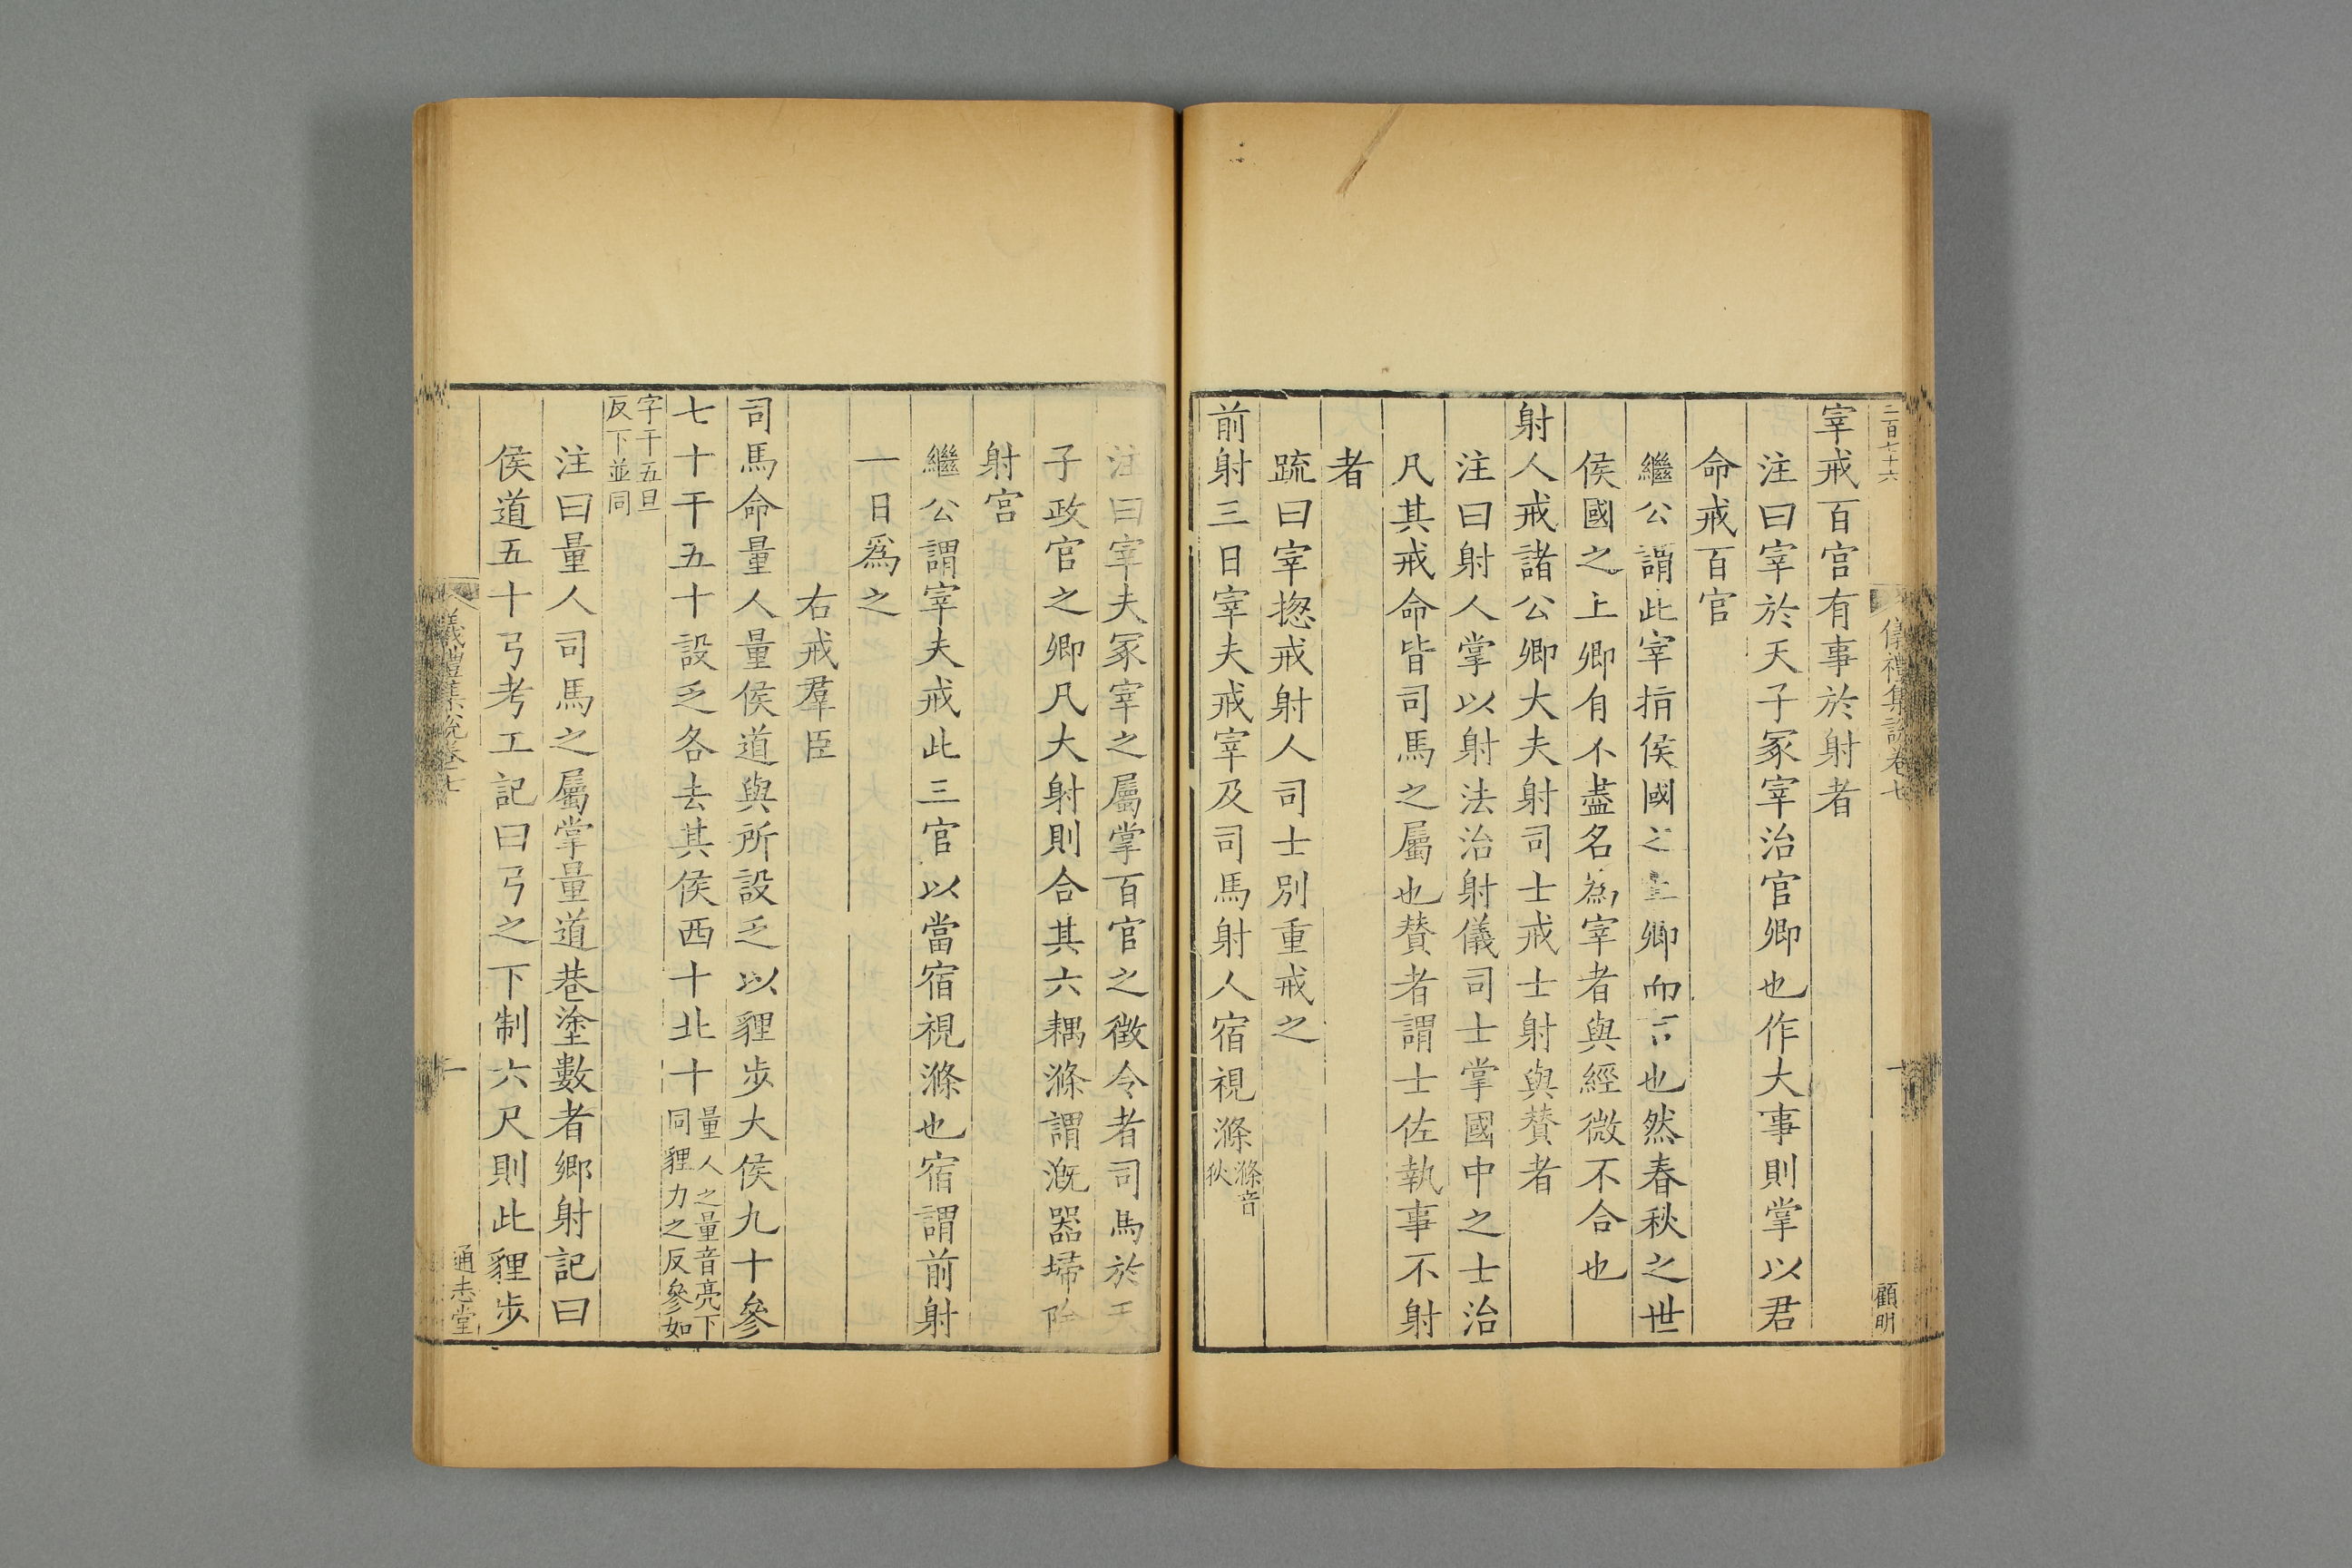 二百七十六
儀禮集說卷七
一
顧明
宰戒百官有事於射者
注曰宰於天子冢宰治官卿也作大事則掌以君
命戒百官
繼公謂此宰指侯國之上卿而言也然春秋之世
侯國之上卿有不盡名爲宰者與經微不合也
射人戒諸公卿大夫射司士戒士射與贊者
注曰射人掌以射法治射儀司士掌國中之士治
凡其戒命皆司馬之屬也贊者謂士佐執事不射
者
疏曰宰揔戒射人司士別重戒之
前射三日宰夫戒宰及司馬射人宿視滌滌音狄
注曰宰夫冢宰之屬掌百官之徵令者司馬於天
子政官之卿凡大射則合其六耦滌謂漑器埽除
射宮
繼公謂宰夫戒此三官以當宿視滌也宿謂前射
一日爲之
右戒羣臣
司馬命量人量侯道與所設乏以貍步大侯九十參
七十干五十設乏各去其侯西十北十量人之量音亮下同貍力之反參如
字干五旦反下並同
注曰量人司馬之屬掌量道巷塗數者鄉射記曰
侯道五十弓考工記曰弓之下制六尺則此貍步
儀禮集說卷七
一
通志堂